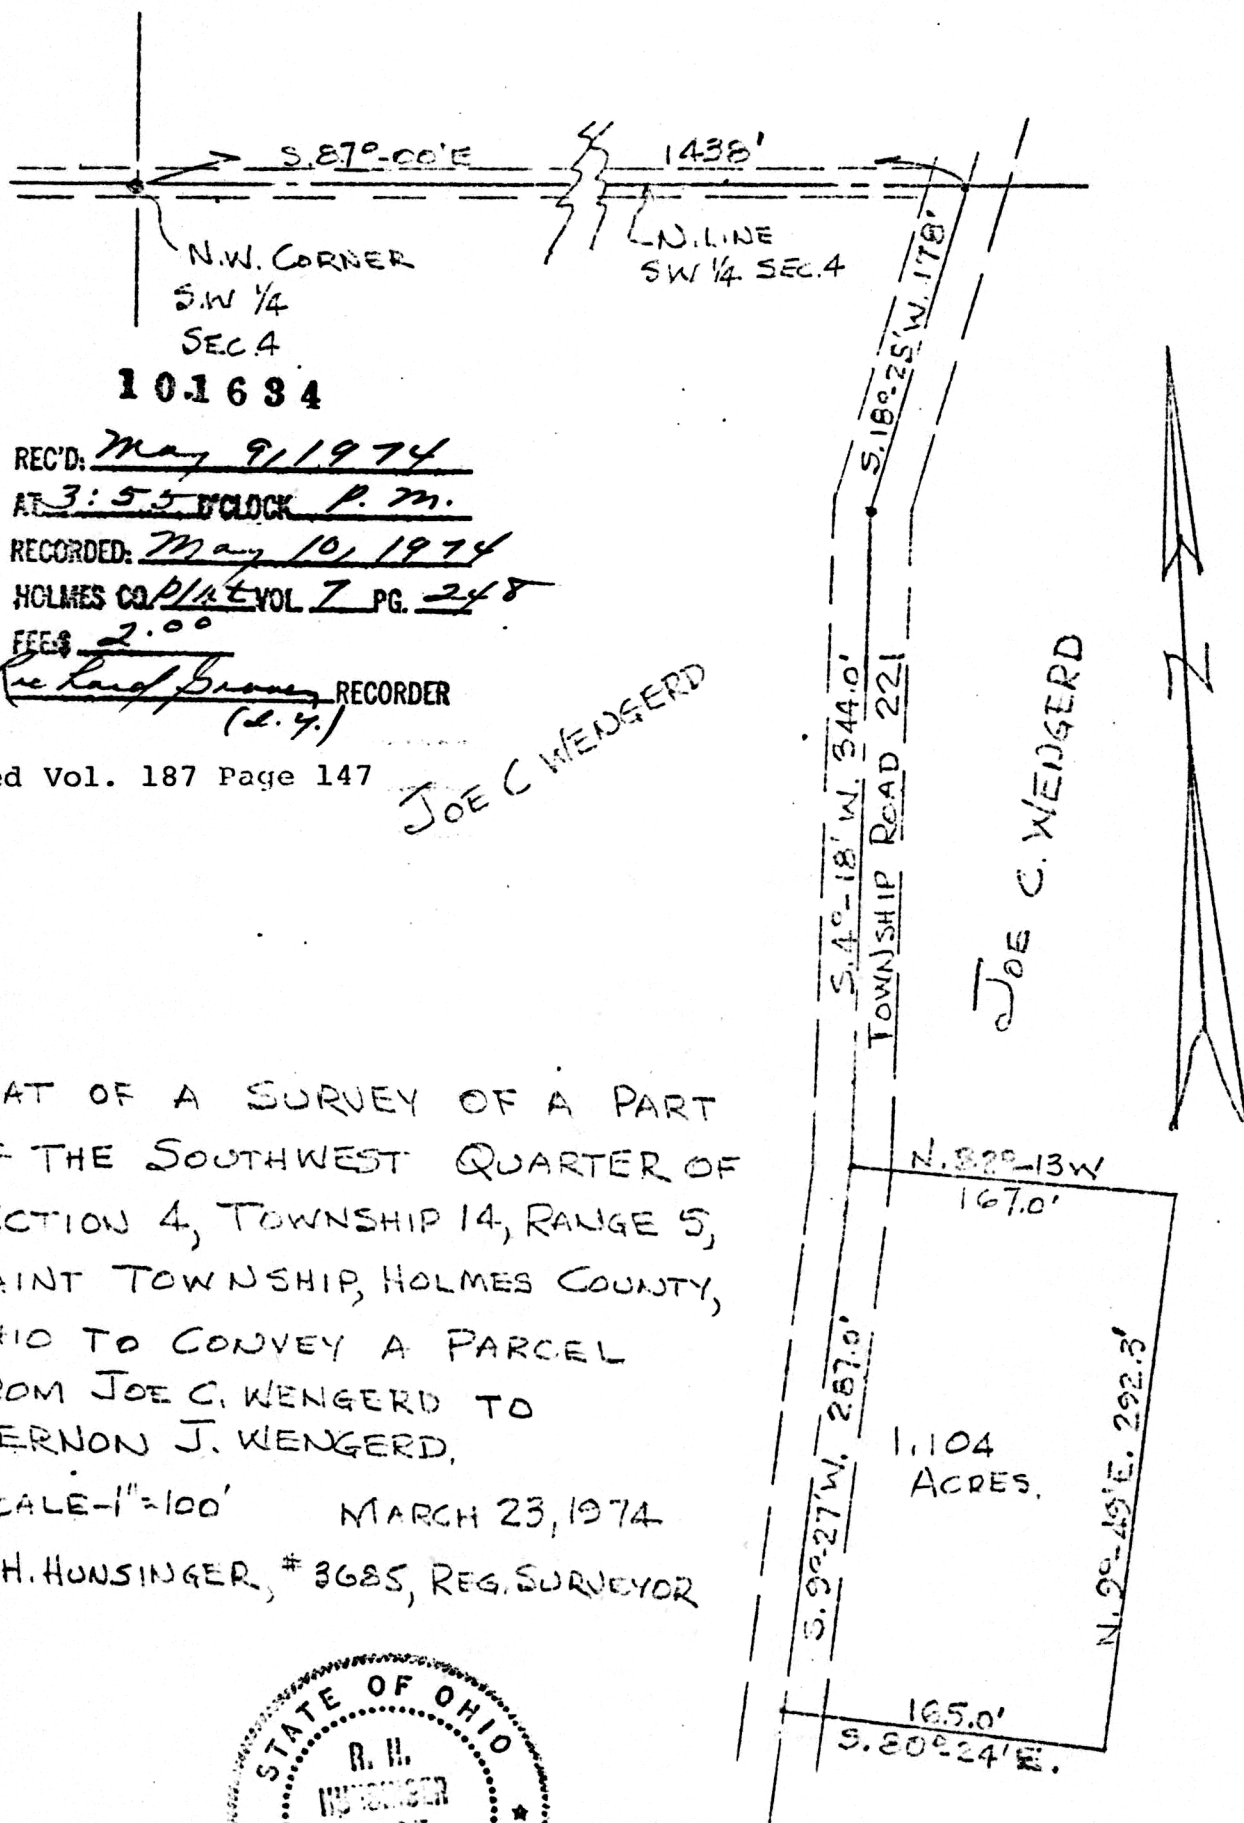 S.87°-00'E 1438'
N.W. CORNER
S.W 1/4
SEC.4
N. LINE
SW 1/4 SEC.4
S.18°-25'W. 178'
101634
REC'D: May 9, 1974
AT 3:55 O'CLOCK P.M.
RECORDED: May 10, 1974
HOLMES CO. Plat VOL 7 PG. 248
FEE$ 2.00
RECORDER
ed Vol. 187 Page 147
JOE C WENGERD
S.4°-18'W. 344.0'
TOWNSHIP ROAD 221
JOE C. WENGERD
N
AT OF A SURVEY OF A PART
F THE SOUTHWEST QUARTER OF
CTION 4, TOWNSHIP 14, RANGE 5,
AINT TOWNSHIP, HOLMES COUNTY,
HIO TO CONVEY A PARCEL
ROM JOE C. WENGERD TO
ERNON J. WENGERD.
CALE-1"=100' MARCH 23, 1974
H. HUNSINGER, #3685, REG. SURVEYOR
N.82°-13W
167.0'
S.9°-27'W. 287.0'
1.104
ACRES.
N.9°-49'E. 292.3'
165.0'
S.80°-24'E.
STATE OF OHIO
R. H.
HUNSINGER